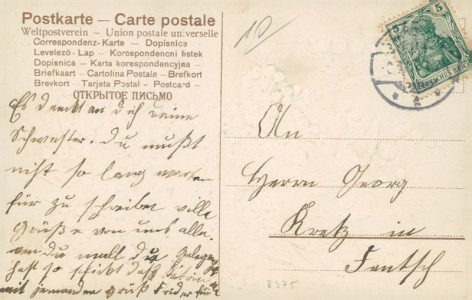 Postkarte — Carte postale
Weltpostverein - Union postale universelle
Correspondenz-Karte - Dopisnica
Levelező-Lap - Korospondencni listek
Dopisnica - Karta korespondencyjna -
Briefkaart - Cartolina Postale - Brefkort
Brevkort - Tarjeta Postal - Postcard -
ОТКРЫТОЕ ПИСЬМО
5
Es denkt an dich deine
Schwester. du mußt
nist so lang warten
für zu schreiben viele
Grüße von uns alle.
wen du mall du
hast so schickt daß
mit jemanden
An
Herrn Georg
Kretz in
Fentsch
8375